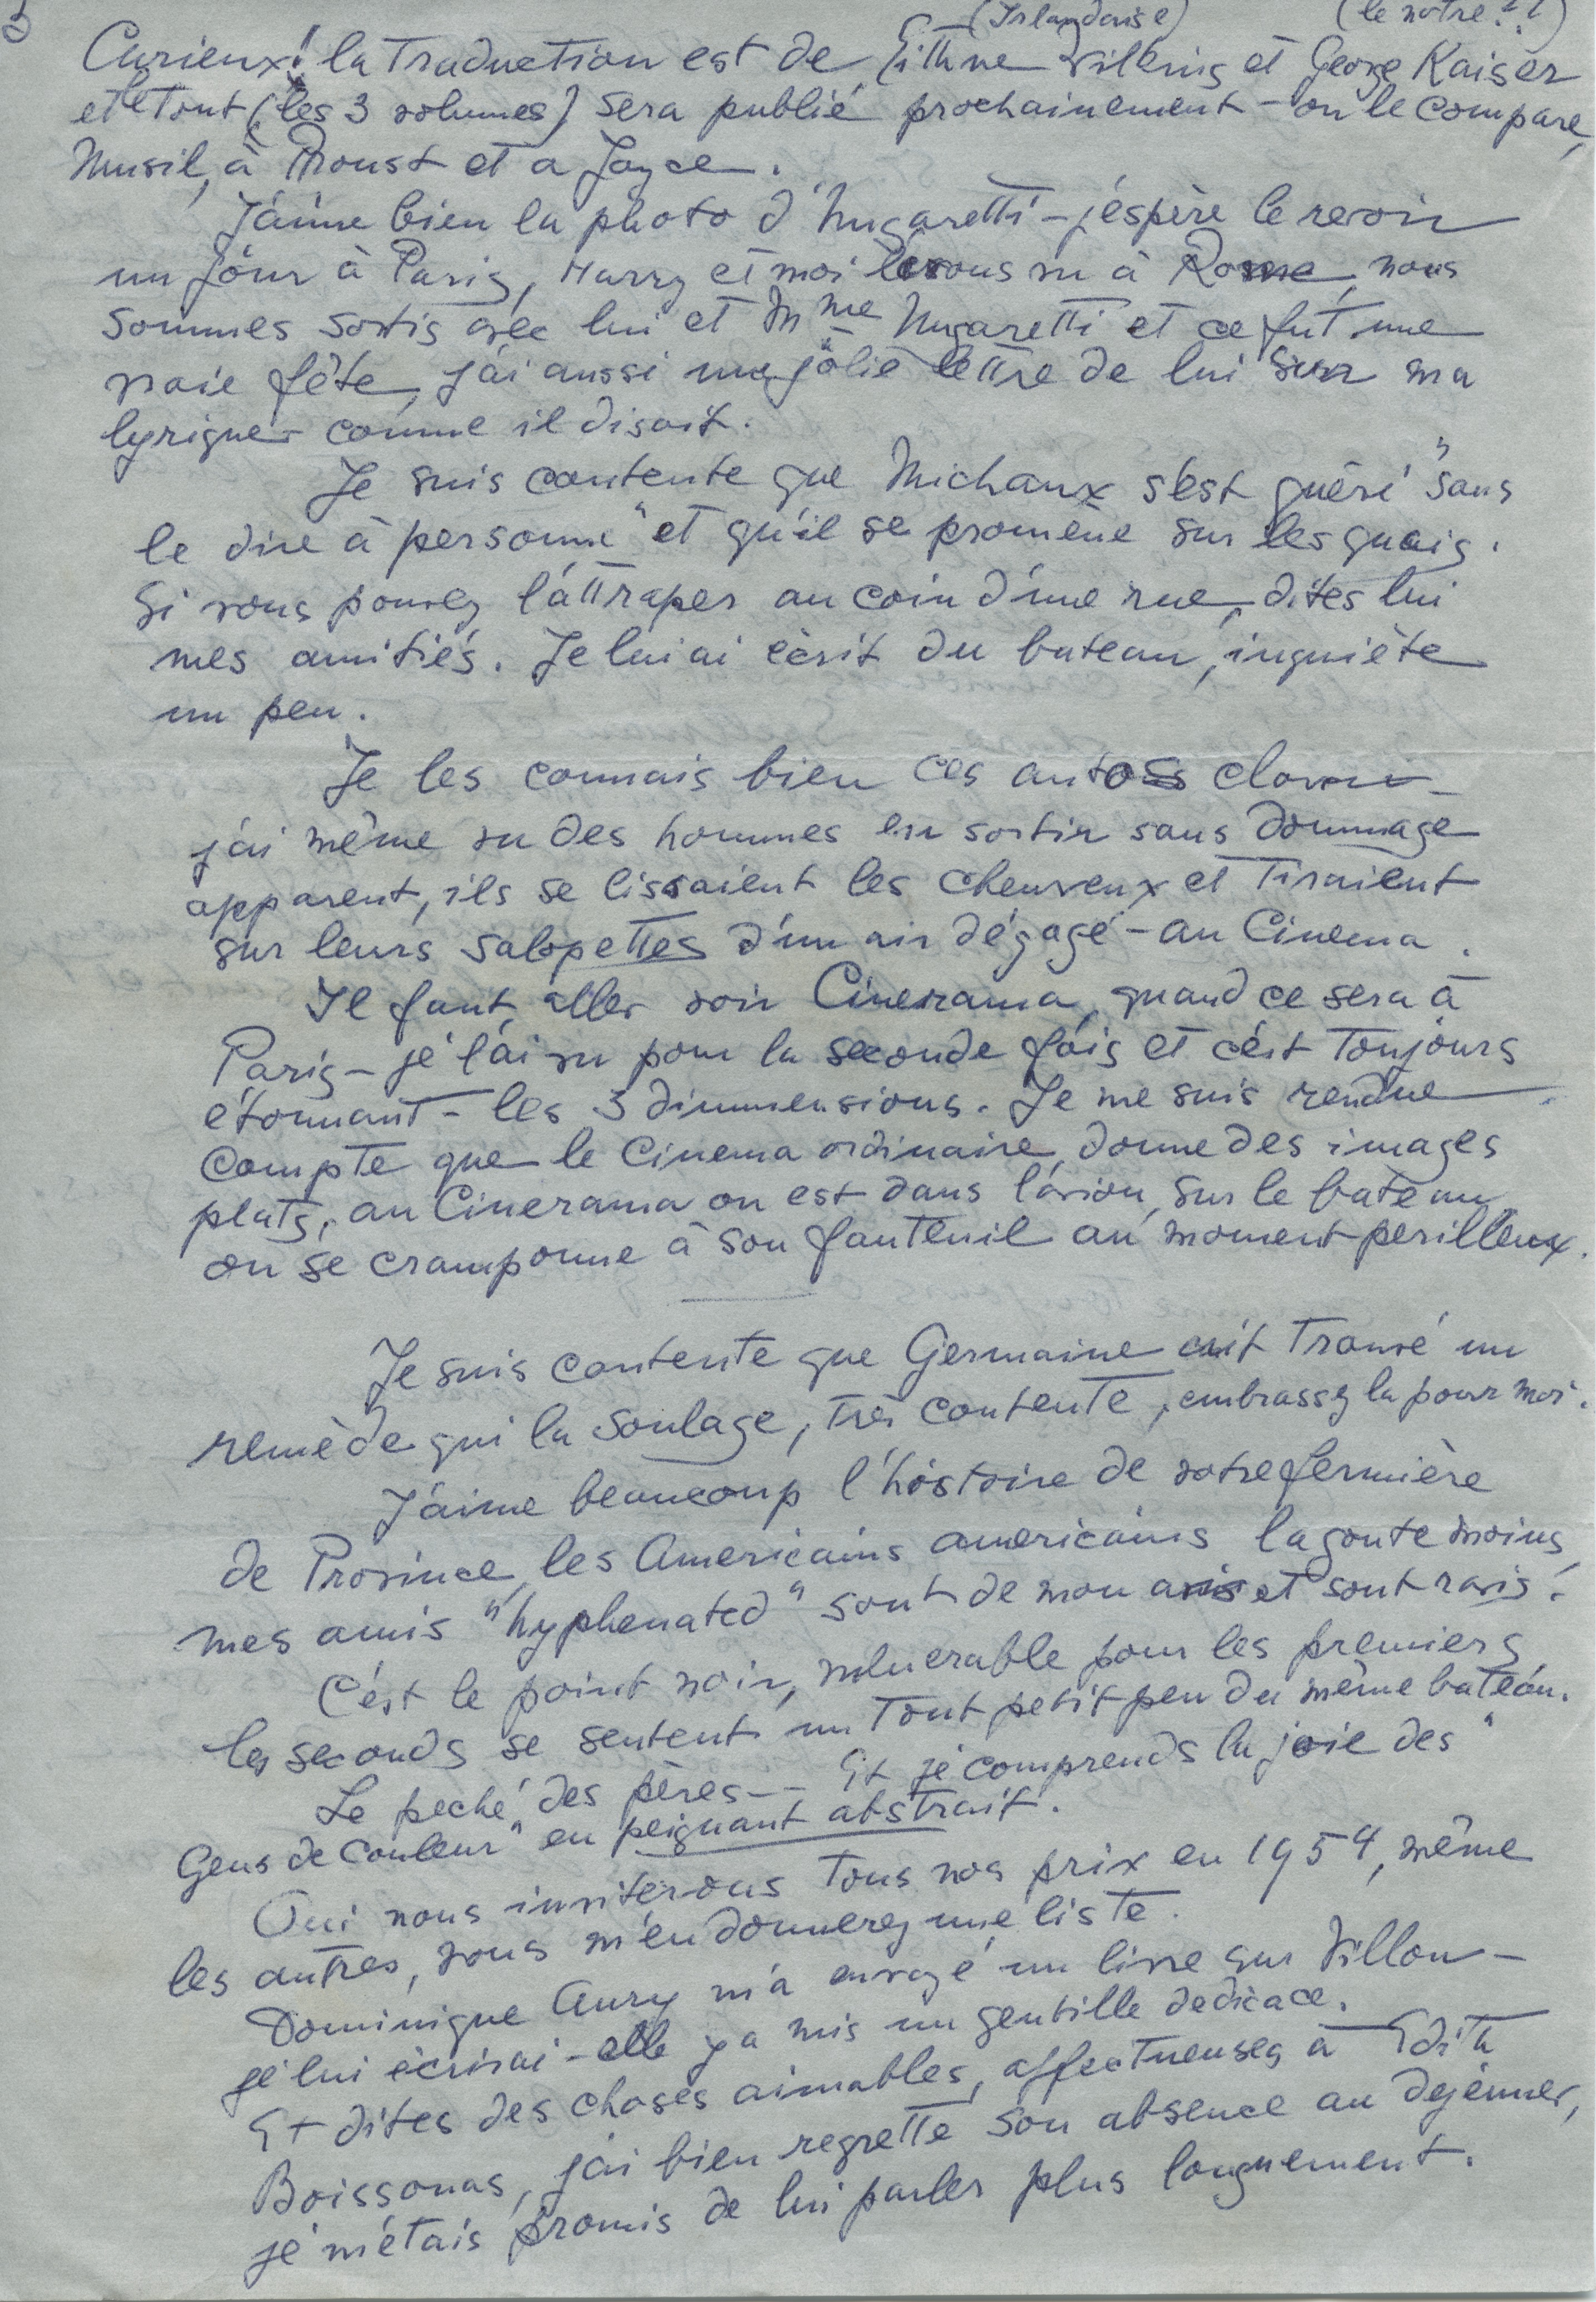 3
(Irlandaise) (le notre??)
Curieux! la traduction est de Eithne Wilkins et George Kaiser
et le tout (les 3 volumes) sera publié prochainement - on le compare,
Musil, à Proust et a Joyce.
J'aime bien la photo d'Ungaretti - j'éspère le revoir
un jour à Paris, Harry et moi l'avons vu à Rome, nous
sommes sortis avec lui et Mme Ungaretti et ce fut une
vraie fête, j'ai aussi une jolie lettre de lui sur ma
lyrique - comme il disait.
Je suis contente que Michaux s'est guéri "sans
le dire à personne" et qu'il se promène sur les quais.
Si vous pouvez l'attraper au coin d'une rue, dites lui
mes amitiés. Je lui ai écrit du bateau, inquiète
un peu.
Je les connais bien ces autos clown -
j'ai même vu des hommes en sortir sans dommage
apparent, ils se lissaient les cheuveux et tiraient
sur leurs salopettes d'un air dégagé - au Cinema.
Il faut aller voir Cinerama, quand ce sera à
Paris - je l'ai vu pour la seconde fois et c'ést toujours
étonnant - les 3 dimmensions. Je me suis rendue
compte que le Cinema ordinaire donne des images
plats, au Cinerama on est dans l'avion, sur le bateau,
on se cramponne à son fauteuil au moment perilleux.
Je suis contente que Germaine ait trouvé un
remède qui la soulage, très contente, embrassez la pour moi.
J'aime beaucoup l'histoire de votre fermière
de Province, les Americains americains la goute moins,
mes amis "hyphenated" sont de mon avis et sont ravis.
C'ést le point noir, vulnerable pour les premiers,
les seconds se sentent un tout petit peu du même bateau.
Le peché des pères -- Et je comprends la joie des "
Gens de Couleur" en peignant abstrait.
Oui nous inviterons tous nos prix en 1954, même
les autres, vous m'en donnerez une liste.
Dominique Aury m'a envoyé un livre sur Villon -
je lui écrirai - elle y a mis un gentille dedicace.
Et dites des choses aimables, affectueuses à Edith
Boissonas, j'ai bien regretté son absence au dejeuner,
je m'étais promis de lui parler plus longuement.